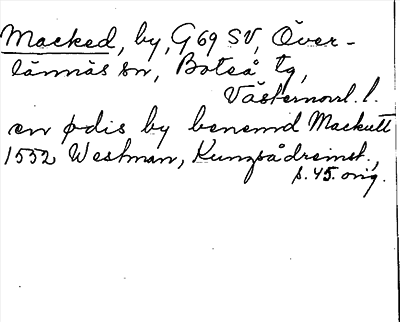 Macked, by, G69 SV, Över-
lännäs sn, Boteå tg,
Västernorrl. l.
en ödis by benemd Mackutt
1552 Westman, Kungsådreinst.,
s. 45. orig.